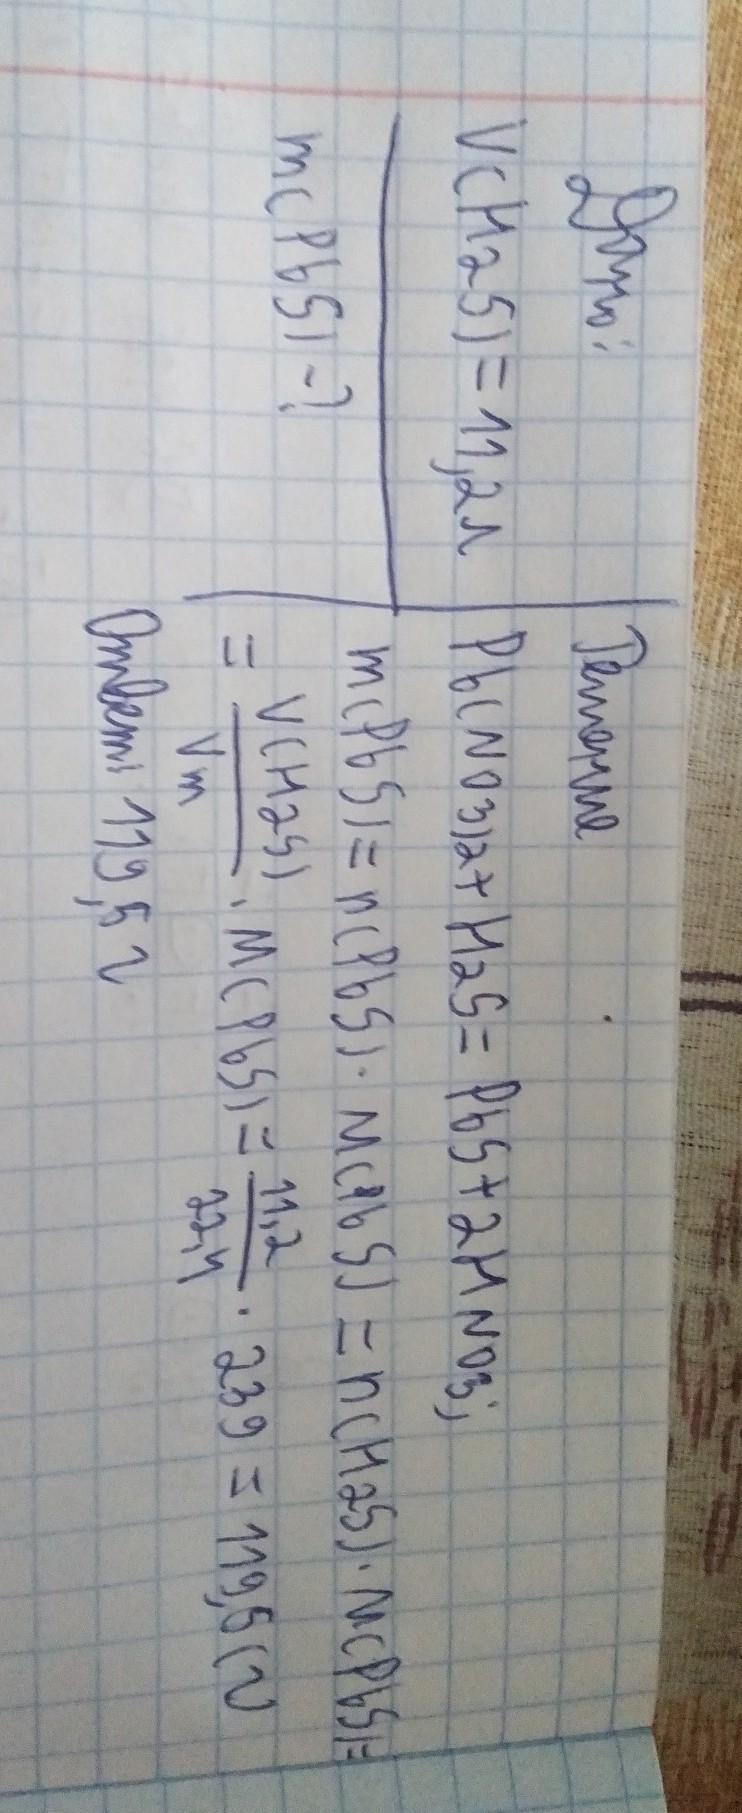 Дано:
V(H2S)=11,2л
m(PbS)-?
Решение
Pb(NO3)2+H2S=PbS+2HNO3;
m(PbS)=n(PbS)·M(PbS)=n(H2S)·M(PbS)=
=V(H2S)/Vm·M(PbS)=11,2/22,4·239=119,5(г
Ответ: 119,5г